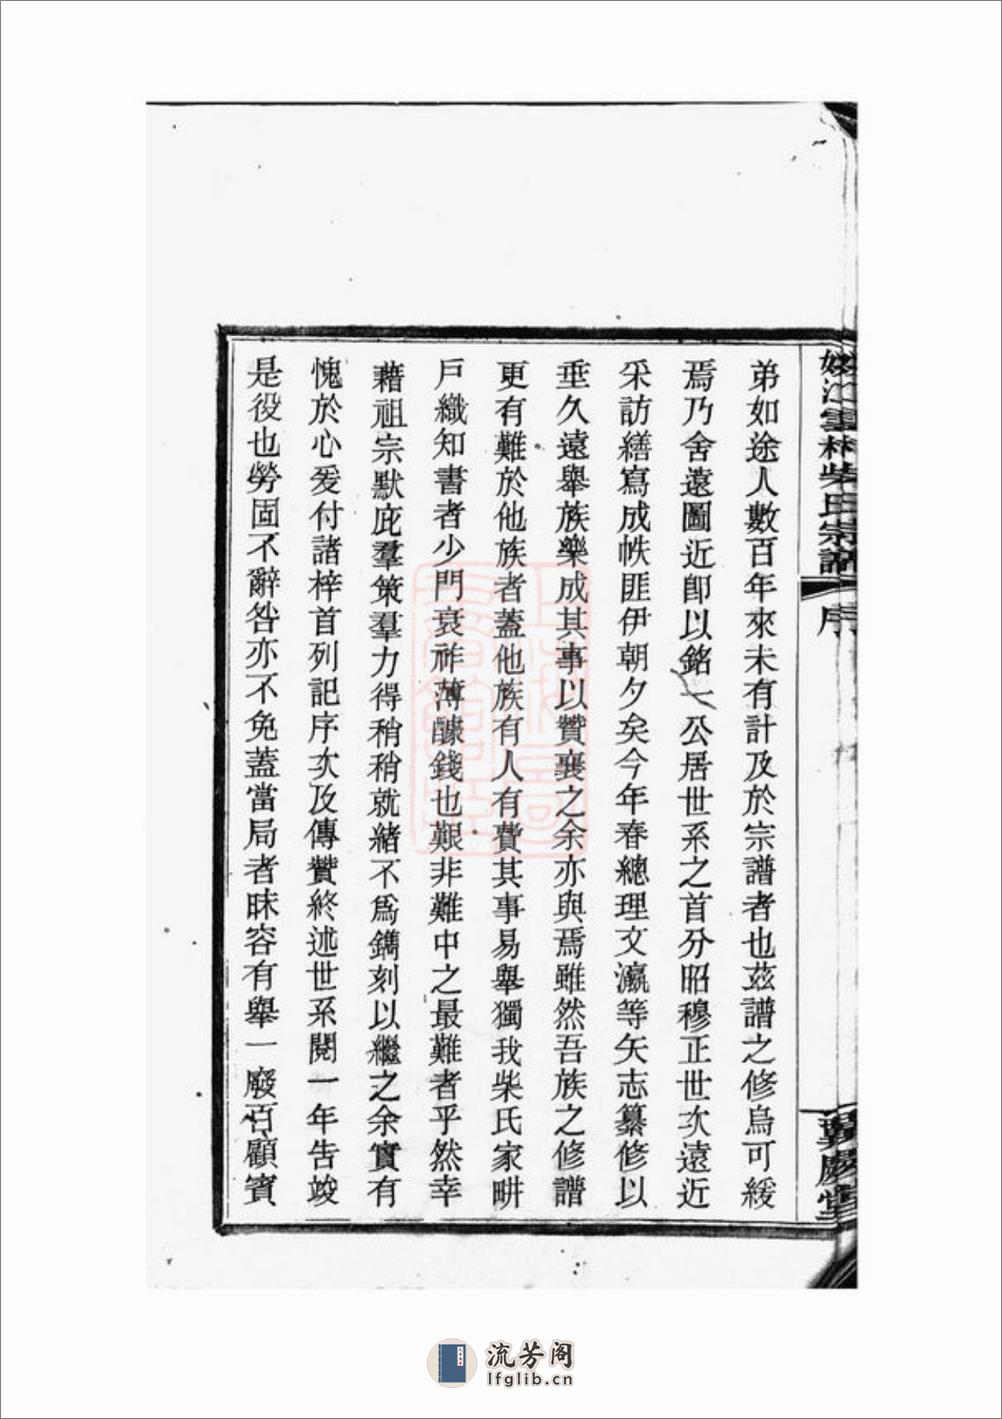 姚江雲林柴氏宗譜 序
弟如途人數百年來未有計及於宗譜者也茲譜之修烏可緩
焉乃舍遠圖近卽以銘一公居世系之首分昭穆正世次遠近
采訪繕寫成帙匪伊朝夕矣今年春總理文瀛等矢志纂修以
垂久遠舉族樂成其事以贊襄之余亦與焉雖然吾族之修譜
更有難於他族者蓋他族有人有費其事易舉獨我柴氏家畊
戶織知書者少門衰祚薄醵錢也艱非難中之最難者乎然幸
藉祖宗默庇羣策羣力得稍稍就緒不爲鐫刻以繼之余實有
愧於心爰付諸梓首列記序次及傳贊終述世系閱一年告竣
是役也勞固不辭咎亦不免蓋當局者昧容有舉一廢百顧賓
流芳阁
lfglib.cn